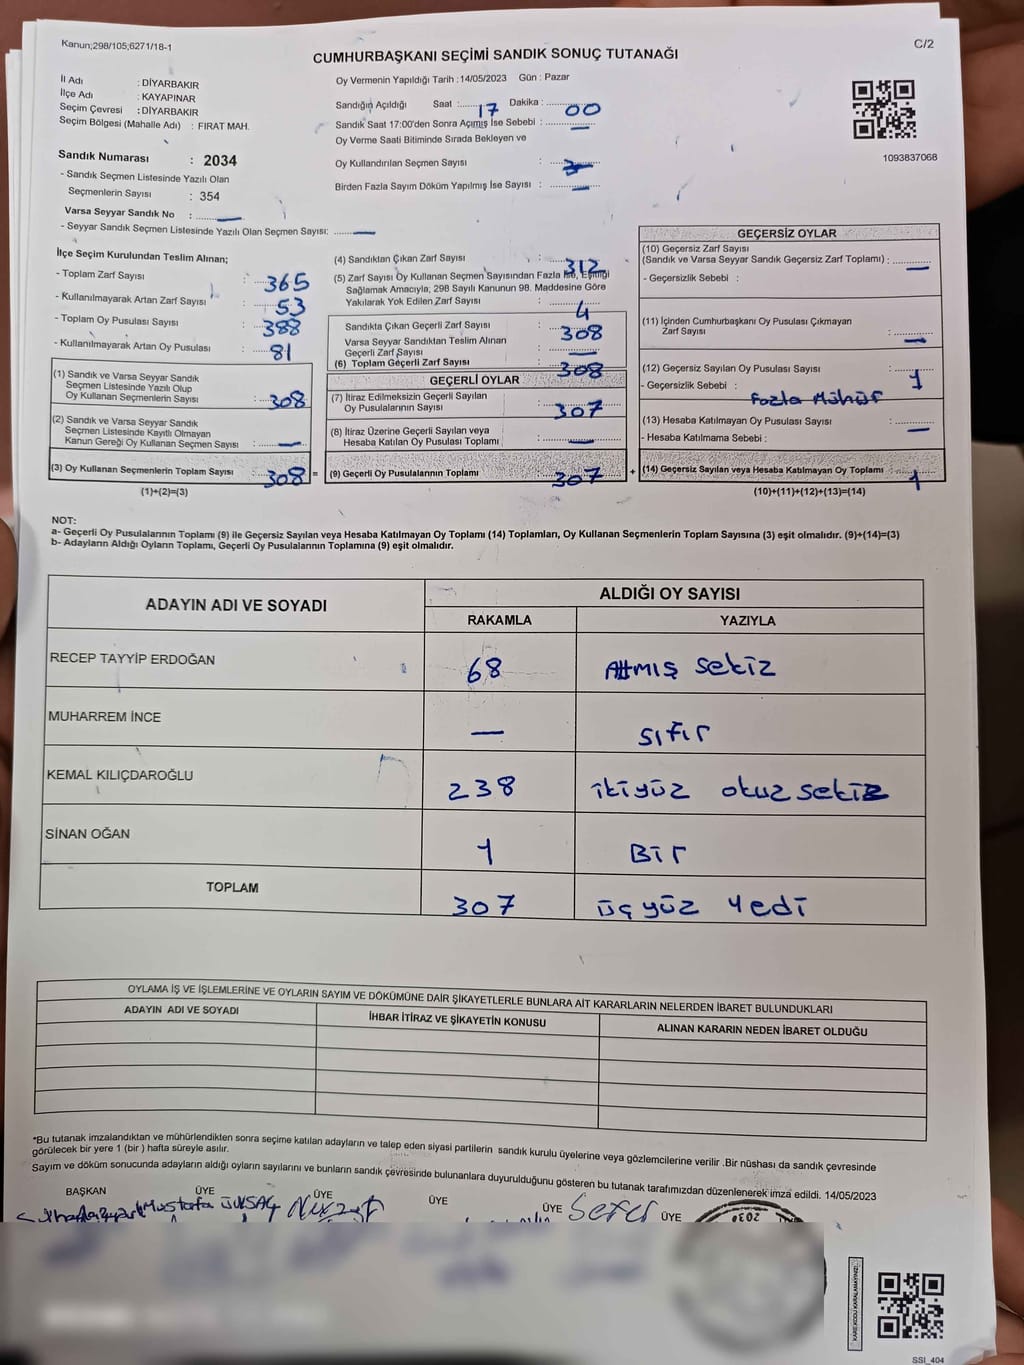 Kanun;298/105;6271/18-1
C/2
CUMHURBAŞKANI SEÇİMİ SANDIK SONUÇ TUTANAĞI
İl Adı : DİYARBAKIR
İlçe Adı : KAYAPINAR
Seçim Çevresi : DİYARBAKIR
Seçim Bölgesi (Mahalle Adı) : FIRAT MAH.
Sandık Numarası : 2034
- Sandık Seçmen Listesinde Yazılı Olan
Seçmenlerin Sayısı : 354
Varsa Seyyar Sandık No : —
- Seyyar Sandık Seçmen Listesinde Yazılı Olan Seçmen Sayısı: —
Oy Vermenin Yapıldığı Tarih : 14/05/2023 Gün : Pazar
Sandığın Açıldığı Saat : 17 Dakika : 00
Sandık Saat 17:00'den Sonra Açımış İse Sebebi : —
Oy Verme Saati Bitiminde Sırada Bekleyen ve
Oy Kullandırılan Seçmen Sayısı :
Birden Fazla Sayım Döküm Yapılmış İse Sayısı : —
1093837068
İlçe Seçim Kurulundan Teslim Alınan;
- Toplam Zarf Sayısı : 365
- Kullanılmayarak Artan Zarf Sayısı : 53
- Toplam Oy Pusulası Sayısı : 388
- Kullanılmayarak Artan Oy Pusulası : 81
(1) Sandık ve Varsa Seyyar Sandık
Seçmen Listesinde Yazılı Olup
Oy Kullanan Seçmenlerin Sayısı : 308
(2) Sandık ve Varsa Seyyar Sandık
Seçmen Listesinde Kayıtlı Olmayan
Kanun Gereği Oy Kullanan Seçmen Sayısı : —
(3) Oy Kullanan Seçmenlerin Toplam Sayısı : 308 =
(1)+(2)=(3)
(4) Sandıktan Çıkan Zarf Sayısı : 312
(5) Zarf Sayısı Oy Kullanan Seçmen Sayısından Fazla İse, Eşitliği
Sağlamak Amacıyla; 298 Sayılı Kanunun 98. Maddesine Göre
Yakılarak Yok Edilen Zarf Sayısı : 4
Sandıkta Çıkan Geçerli Zarf Sayısı : 308
Varsa Seyyar Sandıktan Teslim Alınan
Geçerli Zarf Sayısı : —
(6) Toplam Geçerli Zarf Sayısı : 308
GEÇERLİ OYLAR
(7) İtiraz Edilmeksizin Geçerli Sayılan
Oy Pusulalarının Sayısı : 307
(8) İtiraz Üzerine Geçerli Sayılan veya
Hesaba Katılan Oy Pusulası Toplamı : —
(9) Geçerli Oy Pusulalarının Toplamı : 307 +
GEÇERSİZ OYLAR
(10) Geçersiz Zarf Sayısı
(Sandık ve Varsa Seyyar Sandık Geçersiz Zarf Toplamı) : —
- Geçersizlik Sebebi :
(11) İçinden Cumhurbaşkanı Oy Pusulası Çıkmayan
Zarf Sayısı : —
(12) Geçersiz Sayılan Oy Pusulası Sayısı : 1
- Geçersizlik Sebebi : Fazla Mühür
(13) Hesaba Katılmayan Oy Pusulası Sayısı : —
- Hesaba Katılmama Sebebi :
(14) Geçersiz Sayılan veya Hesaba Katılmayan Oy Toplamı : 1
(10)+(11)+(12)+(13)=(14)
NOT:
a- Geçerli Oy Pusulalarının Toplamı (9) ile Geçersiz Sayılan veya Hesaba Katılmayan Oy Toplamı (14) Toplamları, Oy Kullanan Seçmenlerin Toplam Sayısına (3) eşit olmalıdır. (9)+(14)=(3)
b- Adayların Aldığı Oyların Toplamı, Geçerli Oy Pusulalarının Toplamına (9) eşit olmalıdır.
ADAYIN ADI VE SOYADI ALDIĞI OY SAYISI
RAKAMLA YAZIYLA
RECEP TAYYİP ERDOĞAN 68 Altmış sekiz
MUHARREM İNCE — sıfır
KEMAL KILIÇDAROĞLU 238 ikiyüz otuz sekiz
SİNAN OĞAN 1 Bir
TOPLAM 307 üç yüz yedi
OYLAMA İŞ VE İŞLEMLERİNE VE OYLARIN SAYIM VE DÖKÜMÜNE DAİR ŞİKAYETLERLE BUNLARA AİT KARARLARIN NELERDEN İBARET BULUNDUKLARI
ADAYIN ADI VE SOYADI İHBAR İTİRAZ VE ŞİKAYETİN KONUSU ALINAN KARARIN NEDEN İBARET OLDUĞU
*Bu tutanak imzalandıktan ve mühürlendikten sonra seçime katılan adayların ve talep eden siyasi partilerin sandık kurulu üyelerine veya gözlemcilerine verilir .Bir nüshası da sandık çevresinde
görülecek bir yere 1 (bir ) hafta süreyle asılır.
Sayım ve döküm sonucunda adayların aldığı oyların sayılarını ve bunların sandık çevresinde bulunanlara duyurulduğunu gösteren bu tutanak tarafımızdan düzenlenerek imza edildi. 14/05/2023
BAŞKAN ÜYE ÜYE ÜYE ÜYE ÜYE
Mustafa
KARE KODU KARALAMAYINIZ!
SSİ_404